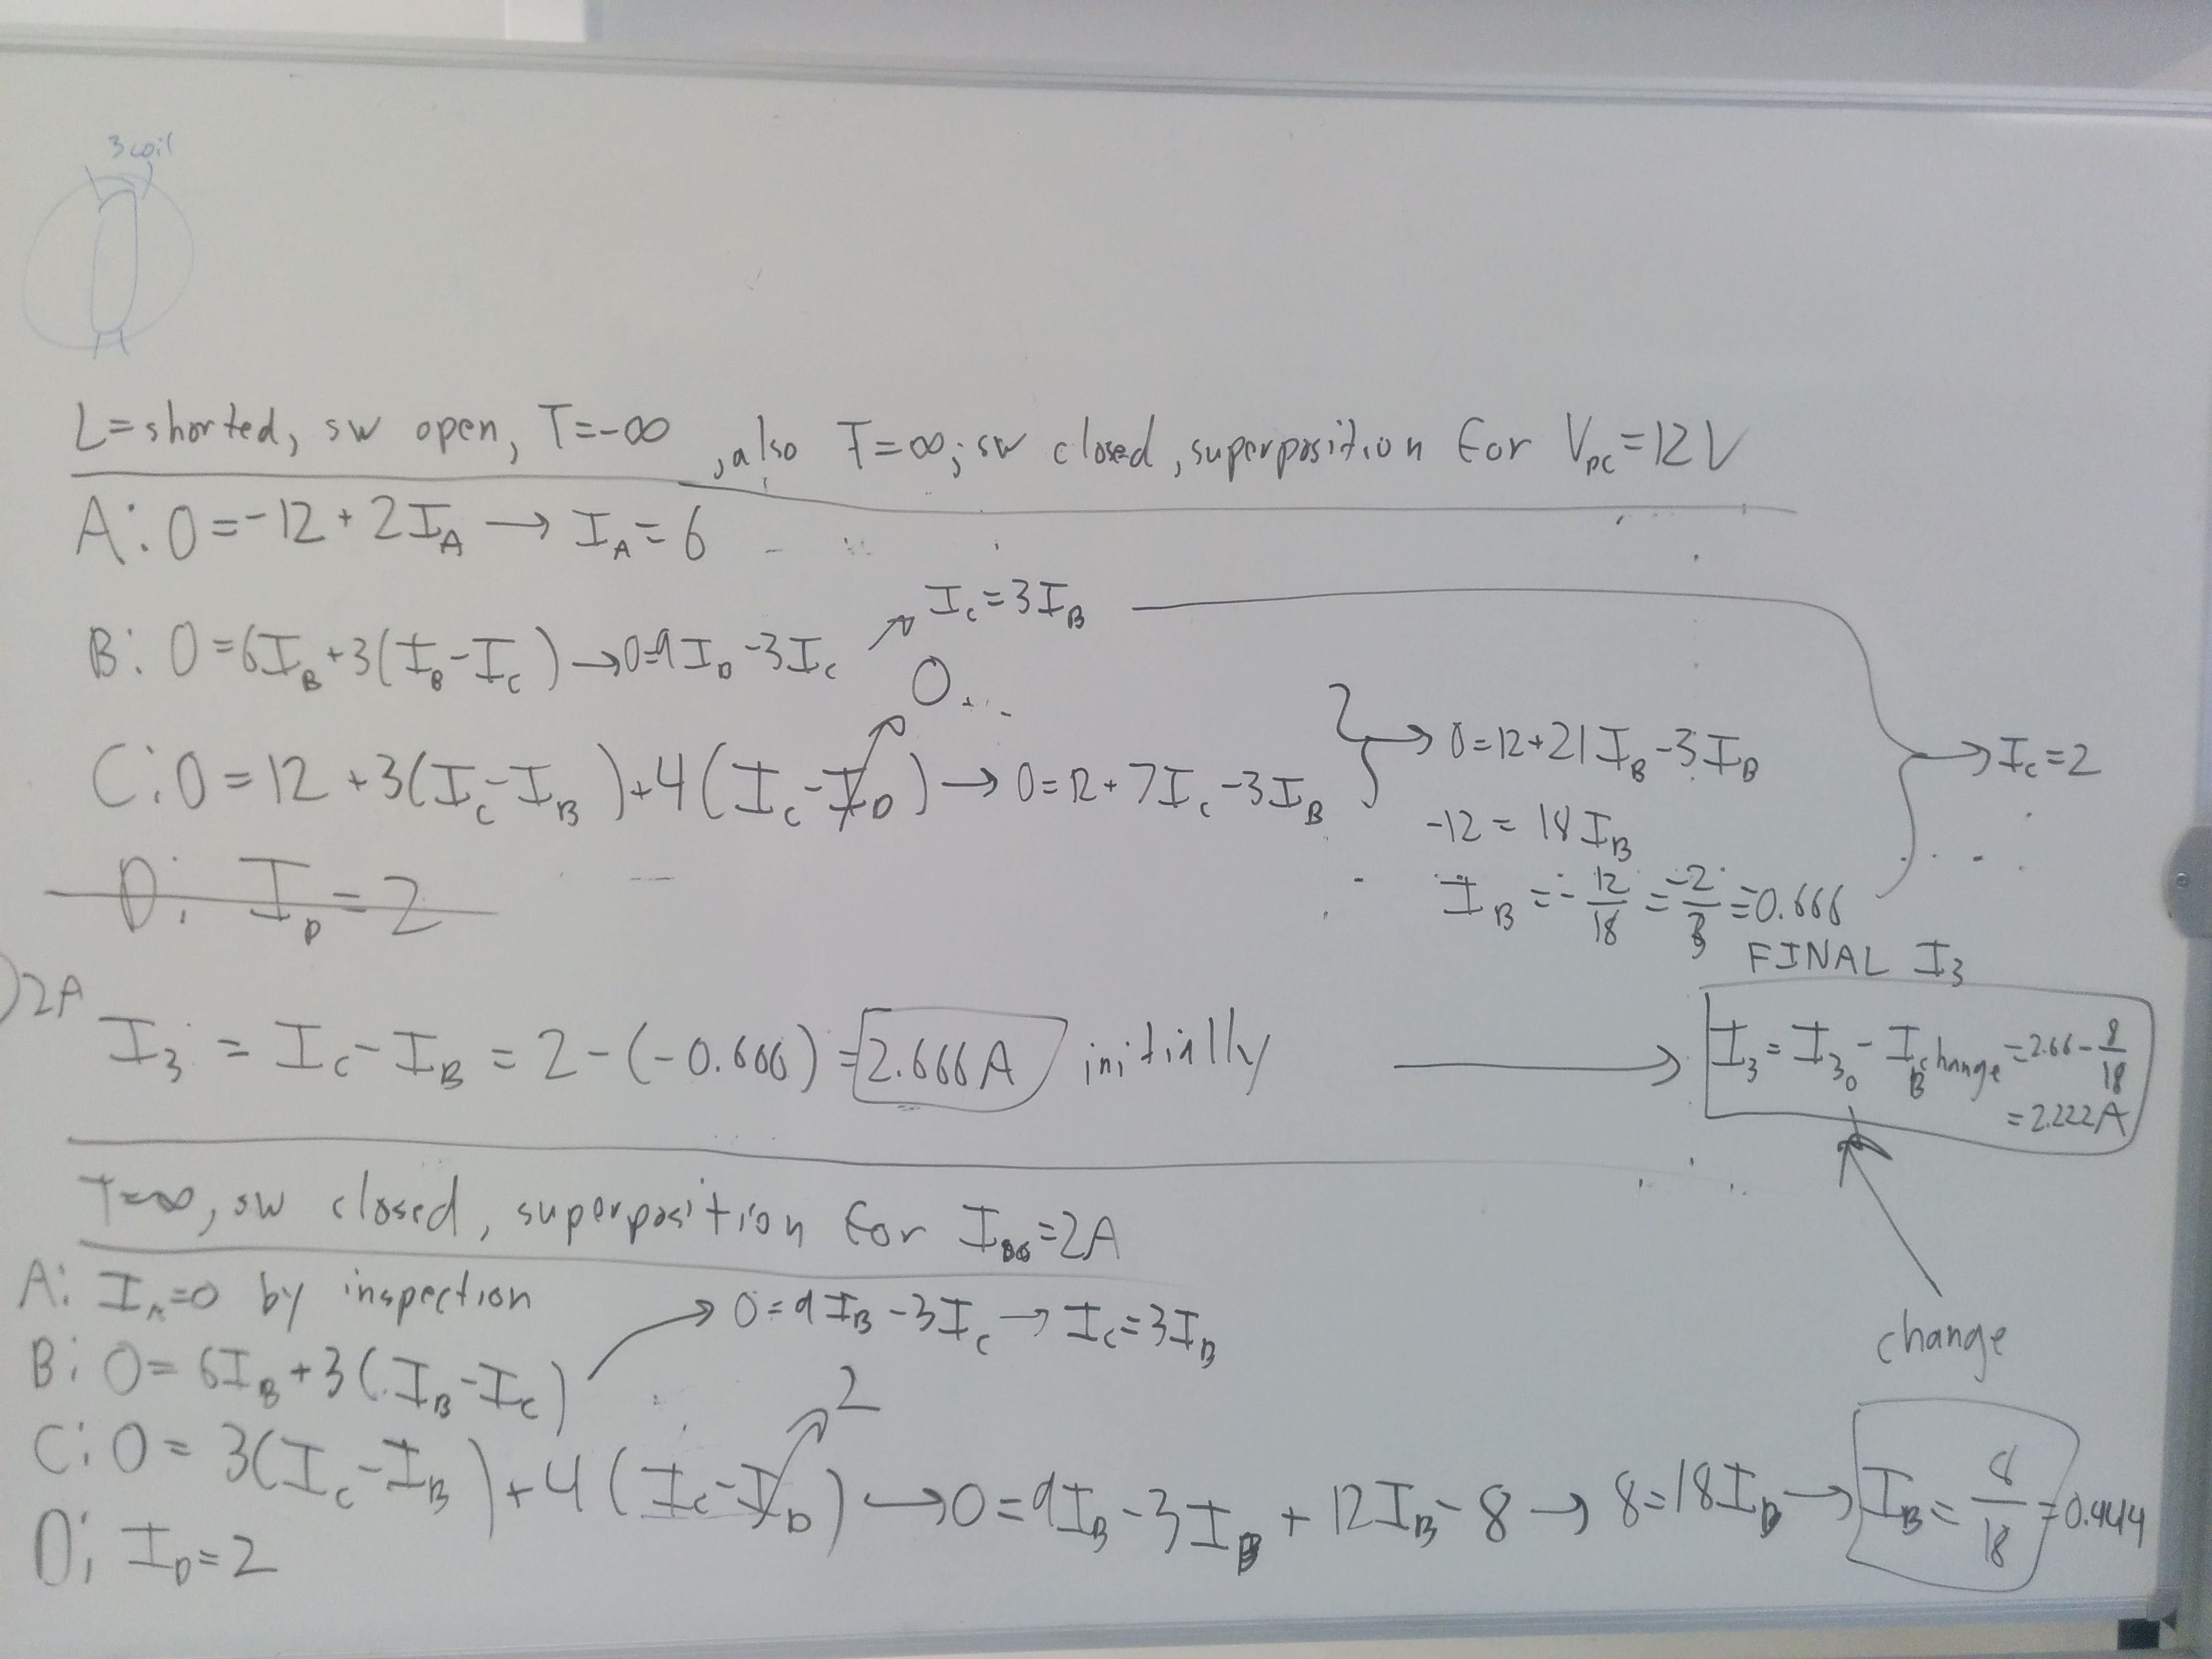 3 coil
L=shorted, sw open, T=-∞ , also T=∞; sw closed, superposition for V_DC=12V
A: 0=-12+2I_A → I_A=6
I_C=3I_B
B: 0=6I_B+3(I_B-I_C) → 0=9I_B-3I_C
0
C: 0=12+3(I_C-I_B)+4(I_C-I_D) → 0=12+7I_C-3I_B
→ 0=12+21I_B-3I_B
-12=18I_B
I_B=-12/18=-2/3=0.666
→ I_C=2
D: I_D=2
FINAL I_3
2A
I_3=I_C-I_B=2-(-0.666)=2.666A initially →
I_3=I_30-I_B change=2.66-8/18
=2.222A
change
T=∞, sw closed, superposition for I_DC=2A
A: I_A=0 by inspection
B: 0=6I_B+3(I_B-I_C) → 0=9I_B-3I_C → I_C=3I_B
2
C: 0=3(I_C-I_B)+4(I_C-I_D) → 0=9I_B-3I_B+12I_B-8 → 8=18I_B → I_B=8/18=0.444
D: I_D=2